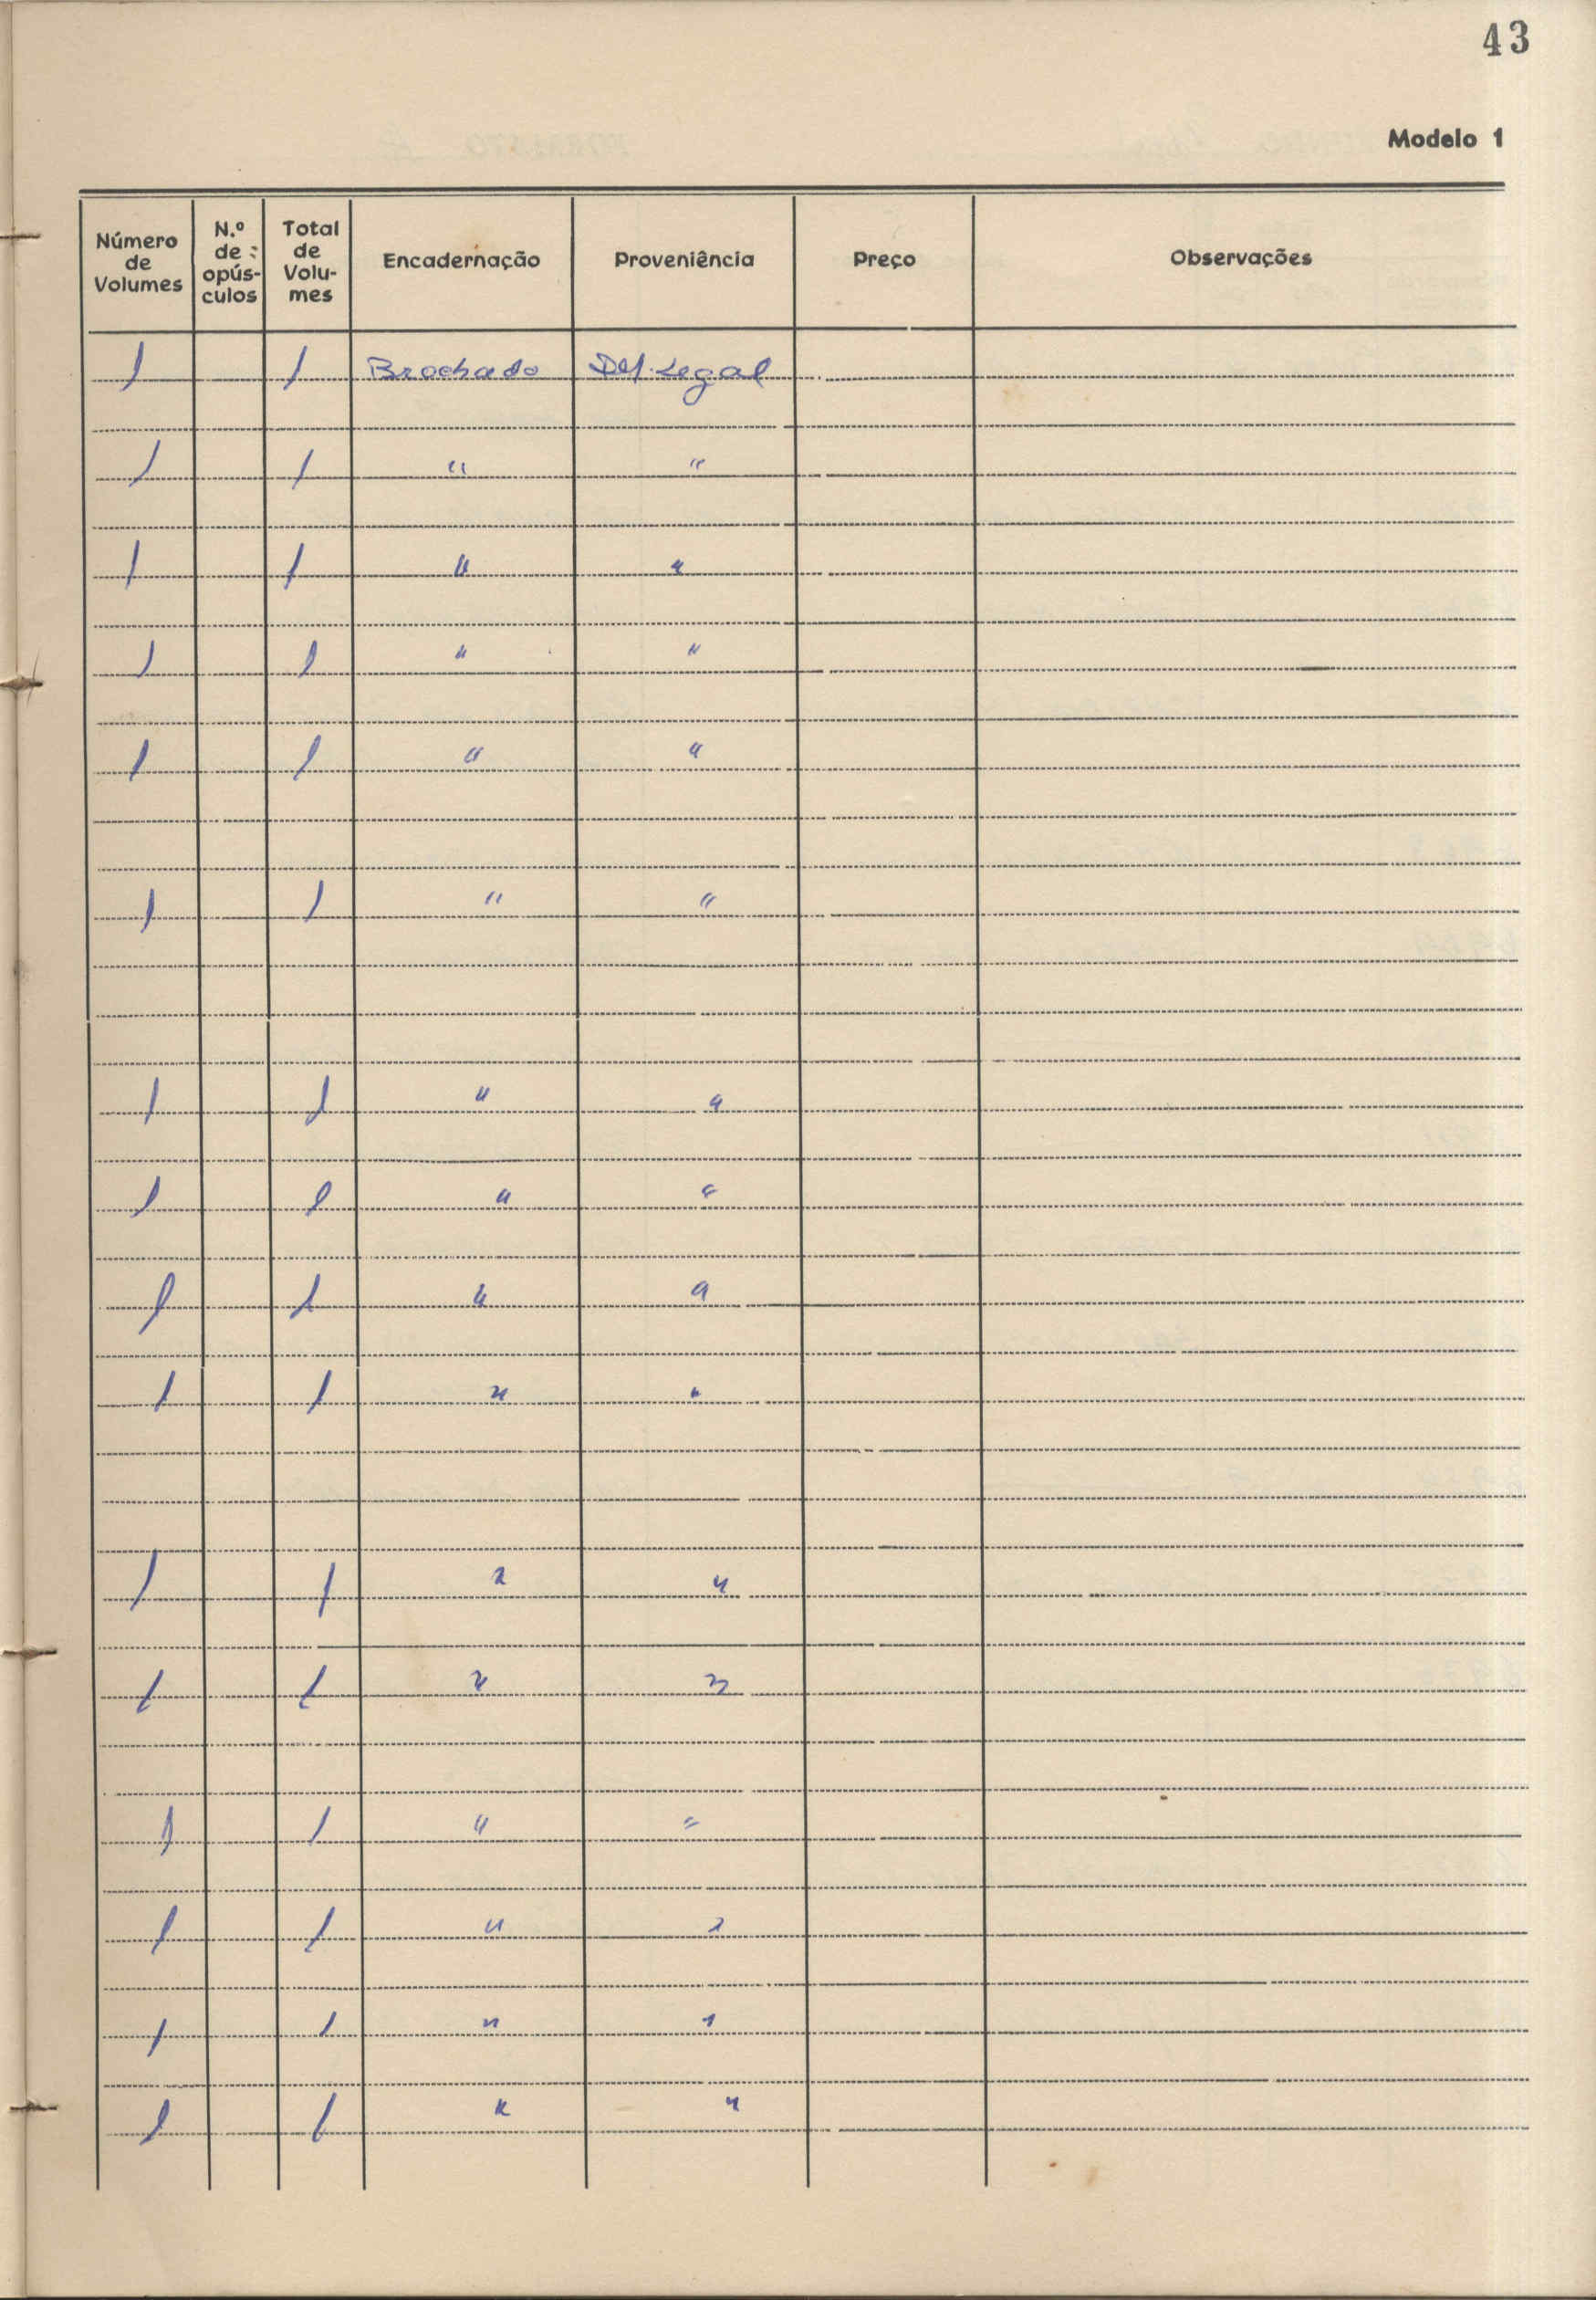 43
Modelo 1
Número de Volumes | N.º de opús-culos | Total de Volu-mes | Encadernação | Proveniência | Preço | Observações
1 | | 1 | Brochado | Dep. Legal
1 | | 1 | " | "
1 | | 1 | " | "
1 | | 1 | " | "
1 | | 1 | " | "
1 | | 1 | " | "
1 | | 1 | " | "
1 | | 1 | " | "
1 | | 1 | " | "
1 | | 1 | " | "
1 | | 1 | " | "
1 | | 1 | " | "
1 | | 1 | " | "
1 | | 1 | " | "
1 | | 1 | " | "
1 | | 1 | " | "